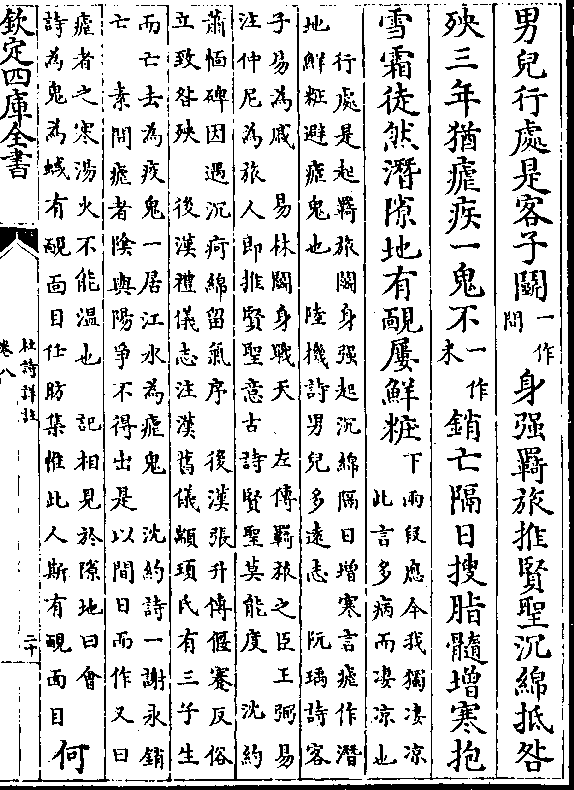 男兒行處是客子鬭一作問身强羇旅推賢聖沉綿抵咎
殃三年猶瘧疾一鬼不一作未銷亡隔日搜脂髓增寒抱
雪霜徒然潛隙地有靦屢鮮粧下兩段應今我獨凄凉
此言多病而凄凉也
行處是起羇旅鬭身强起沉綿隔日增寒言瘧作潛
地鮮粧避瘧鬼也　陸機詩男兒多遠志　阮瑀詩客
子易為戚　易林鬭身戰天　左傳羇旅之臣王弼易
注仲尼為旅人即推賢聖意古詩賢聖莫能度　沈約
蕭愐碑因遇沉疴綿留氣序　後漢張升傳偃蹇反俗
立致咎殃　後漢禮儀志注漢舊儀顓頊氏有三子生
而亡去為疫鬼一居江水為瘧鬼　沈約詩一謝永銷
亡　素問瘧者陰與陽爭不得出是以間日而作又曰
瘧者之寒湯火不能溫也　記相見於隙地曰會
詩為鬼為蜮有靦面目任昉集惟此人斯有靦面目何
欽定四庫全書
杜詩詳註
卷八
二十